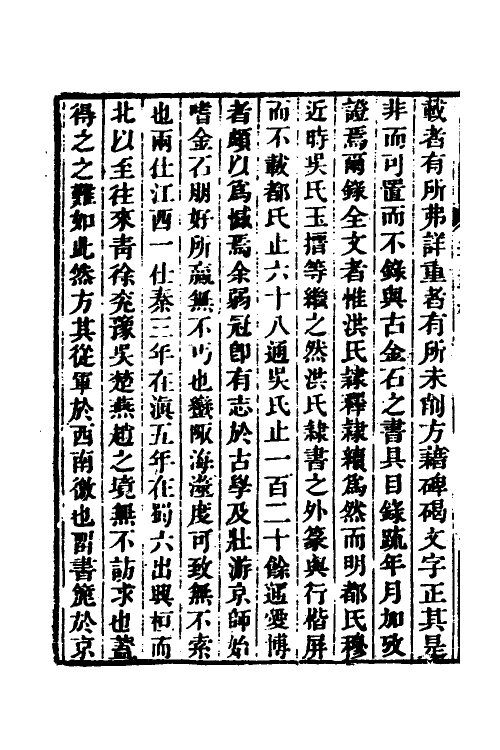 載者有所弗詳重者有所未削方藉碑碣文字正其是
非而可置而不錄與古金石之書具目錄䟽年月加攷
證焉爾錄全文者惟洪氏隸釋隸續為然而明都氏穆
近時吳氏玉搢等繼之然洪氏隸書之外篆與行楷屏
而不載都氏止六十八通吳氏止一百二十餘通愛博
者頗以為憾焉余弱冠卽有志於古學及壯游京師始
嗜金石朋好所贏無不丐也蠻陬海澨度可致無不索
也兩仕江西一仕秦三年在滇五年在蜀六出興桓而
北以至往來靑徐兗豫吳楚燕趙之境無不訪求也蓋
得之之難如此然方其從軍於西南徼也留書簏於京